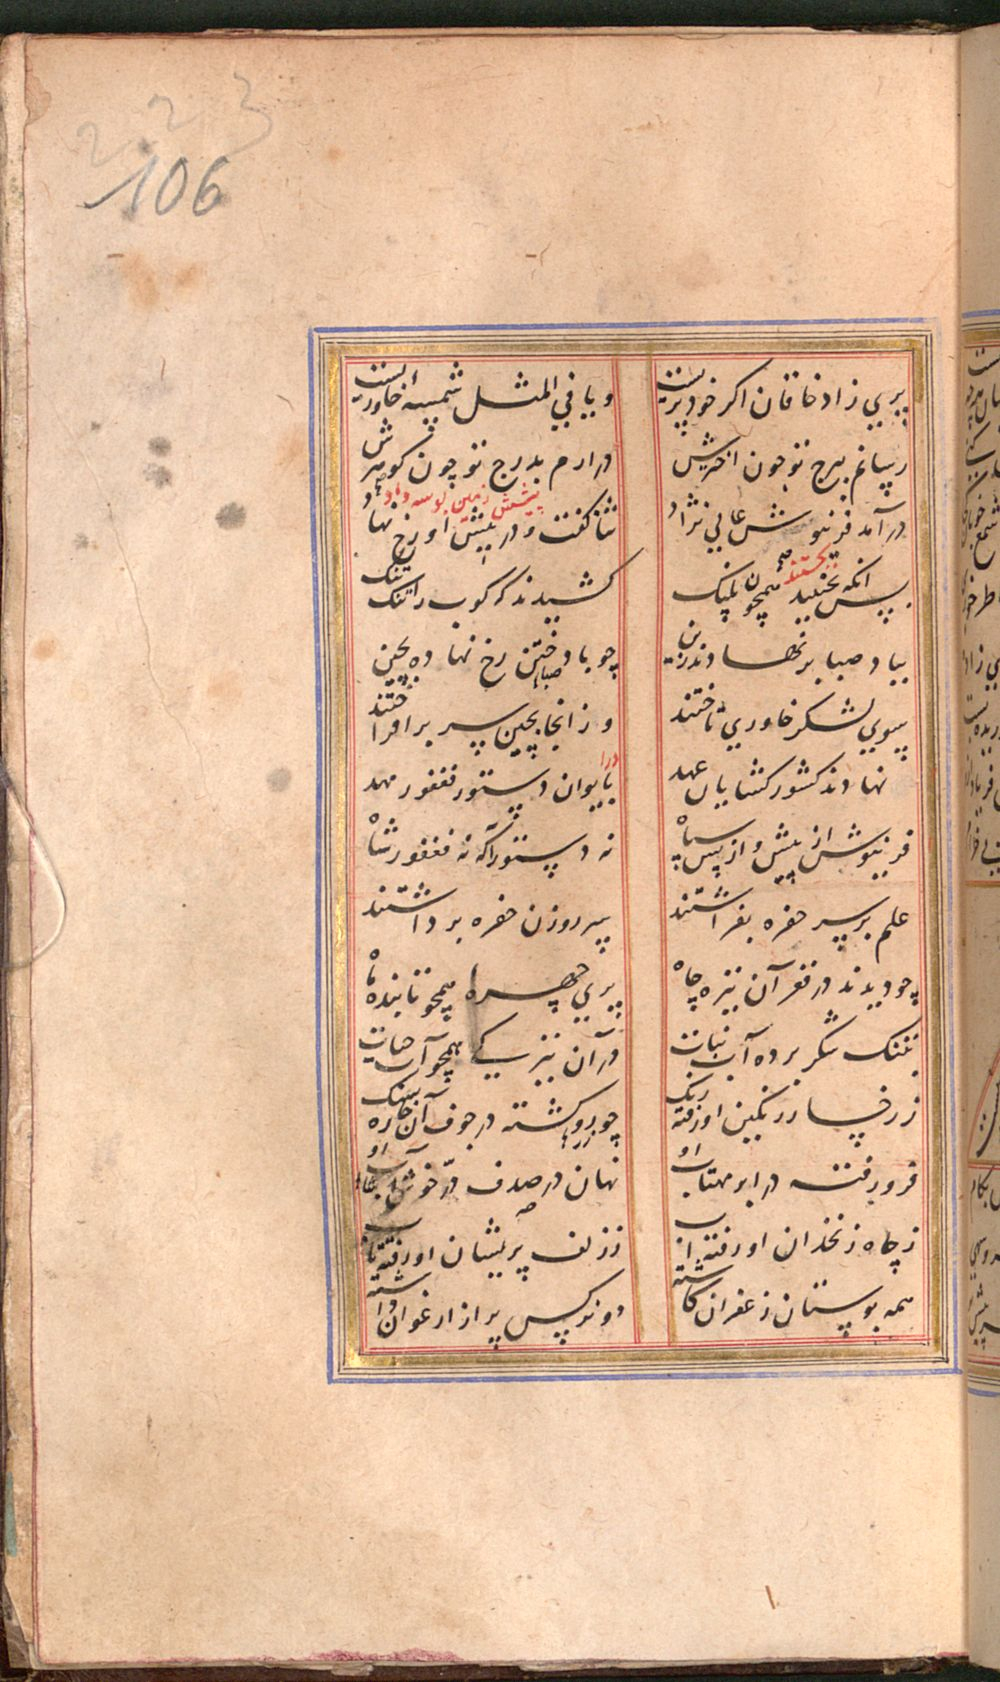 223
106
پری زاد خاقان اگر خود پریست
و یا فی المثل شمسه خاوریست
رسانم ببرج تو چون اخترش
در ارم بدرج تو چون گوهرش
در آمد فرینوش عالی نژاد
ثنا گفت و در پیش او رخ نهاد
پیشش زمین بوسه داد
پس آنکه نخفتید همچون پلنگ
کشیدند که کوب را تنک تنک
بباد صبا بر نهادند زین
چو باد ختن رخ نهاده بچین
بسوی لشکر خاوری تاختند
وز انجا بچین سر بر افراختند
نهادند کشور کشایان عهد
بایوان دستور فغفور مهد
فرینوش از پیش و از پس سپاه
نه دستور آگه نه فغفور شاه
علم بر سر حفره بفراشتند
سر روزن حفره برداشتند
چو دیدند در قعر آن تیره چاه
پری چهره همچو تابنده ماه
بتنک شکر برده آب نبات
در آن تیرگی همچو آب حیات
ز رخسار رنگین او رفته رنگ
چو گشته در جوف آن خاره سنگ
فرو رفته در ابر مهتاب او
نهان در صدف درّ خوش آب او
ز چاه زنخدان او رفته آب
ز زلف پریشان او رفته تاب
همه بوستان زعفران کاشته
دو نرگس پر از ارغوان داشته